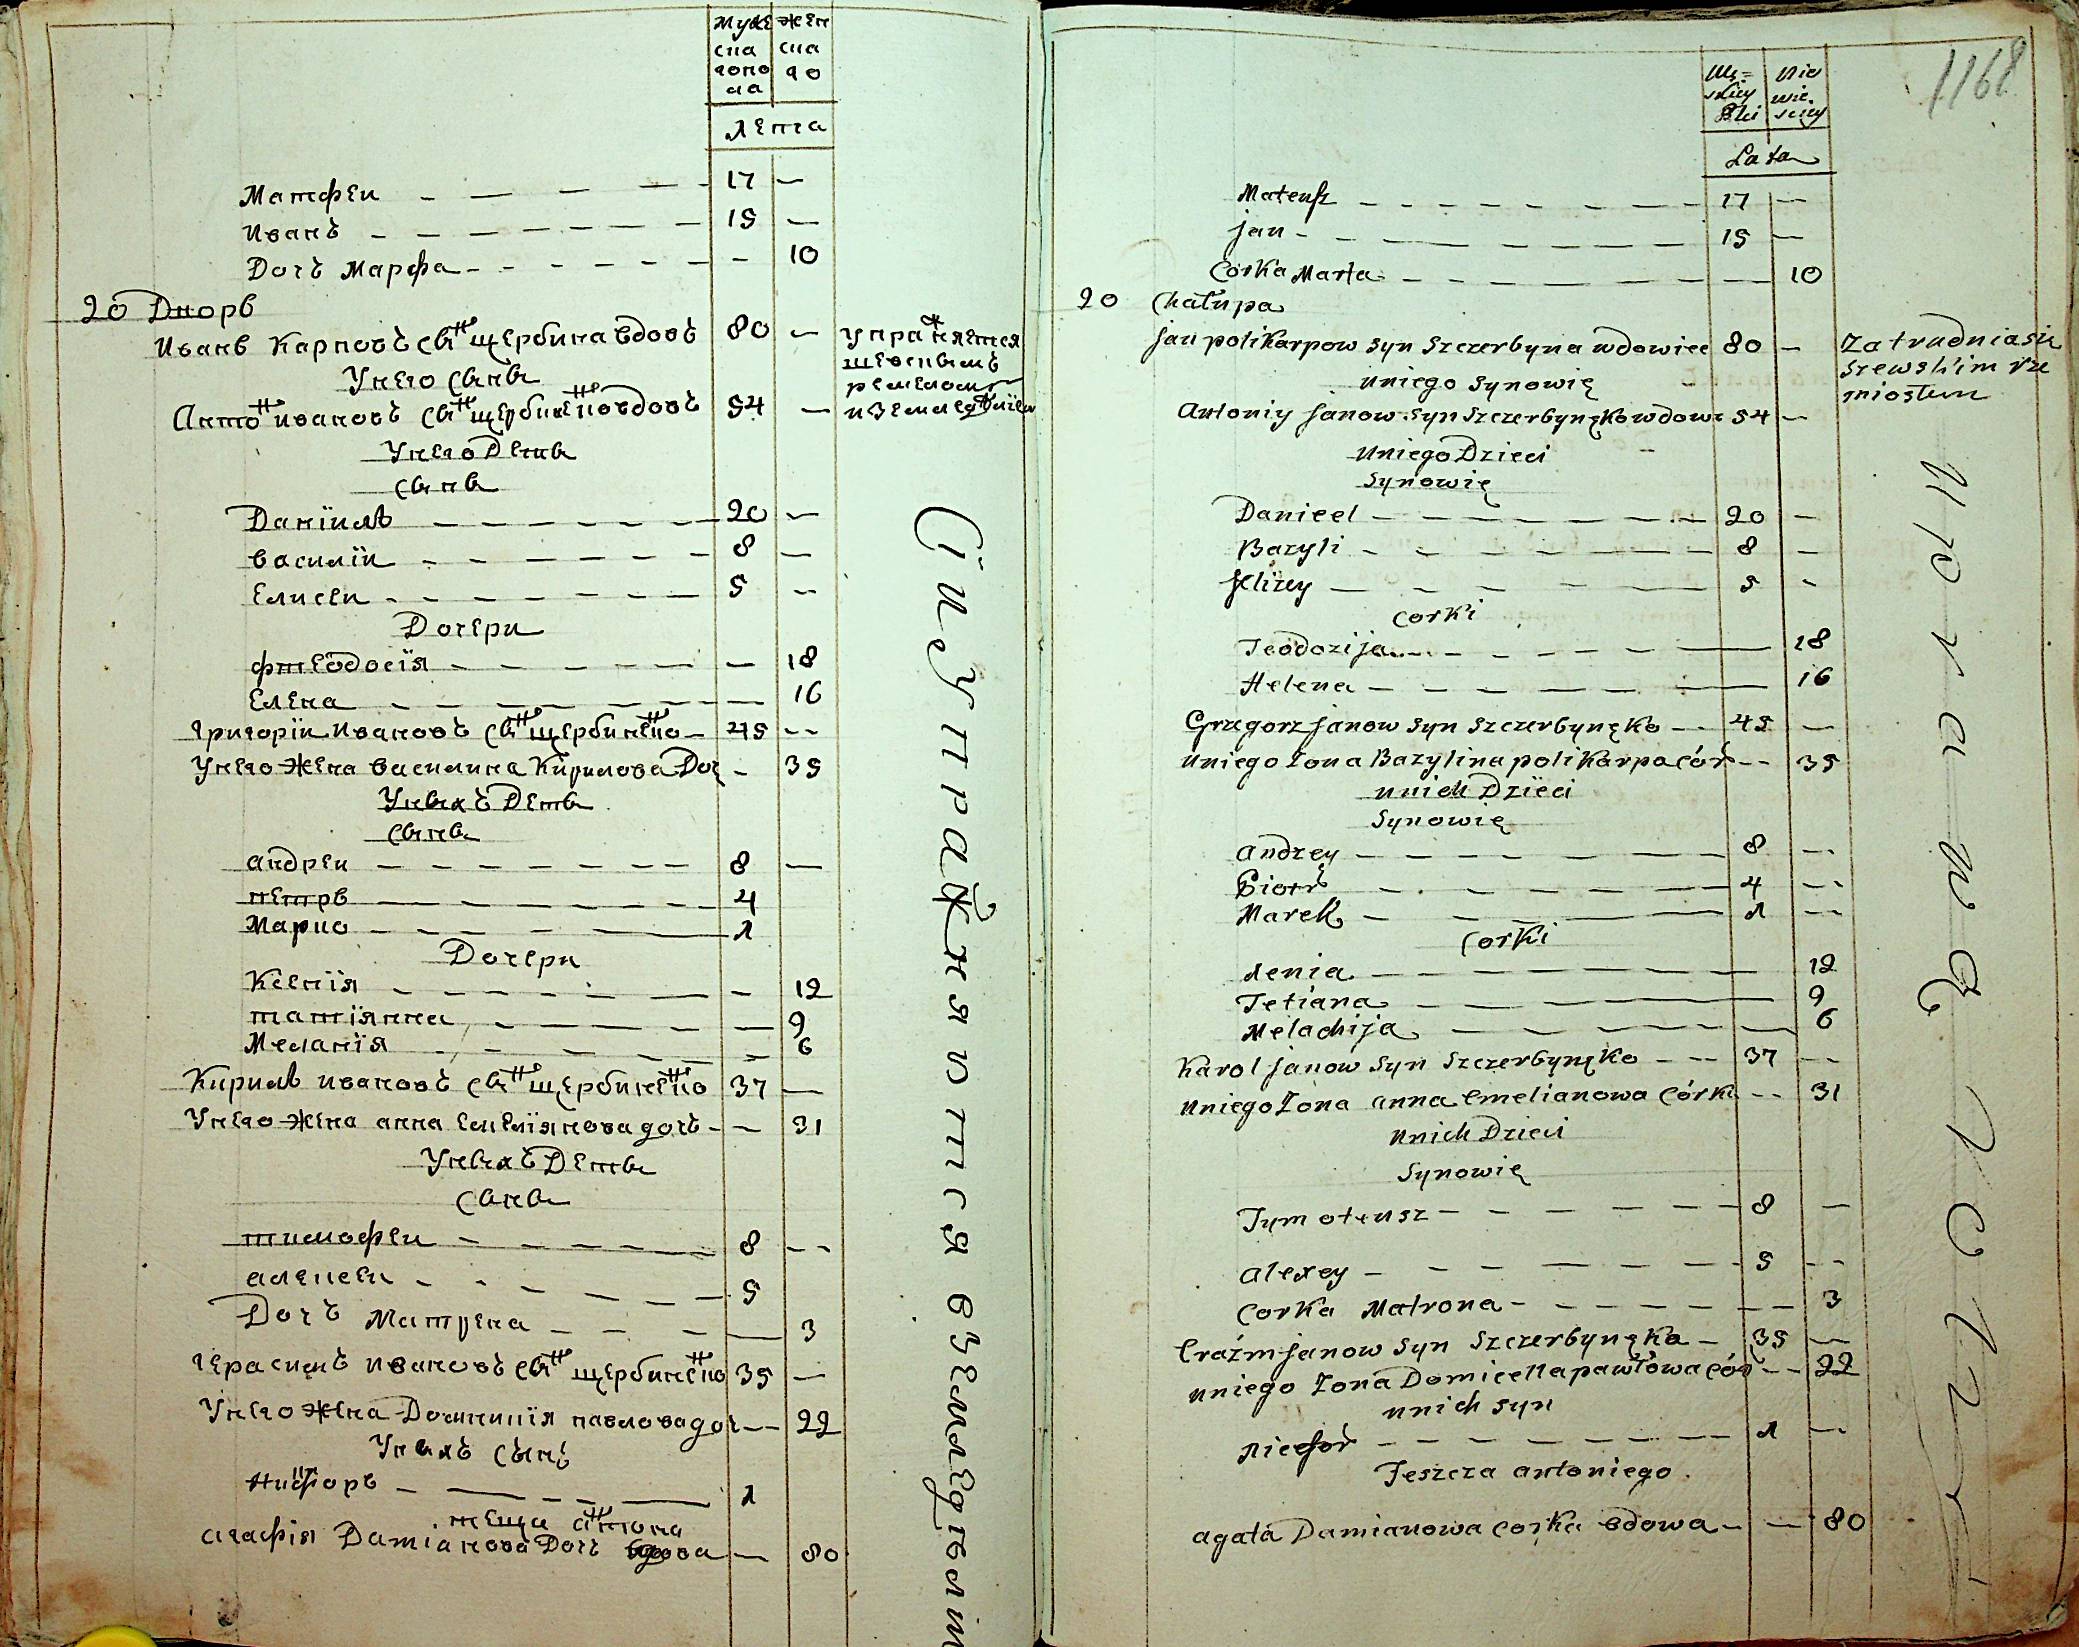 муже жен
ска ска
гопо го
ла
лѣта
Матфеи 17 —
Иванъ 15 —
Дочъ Марфа — 10
20 Дворъ
Иванъ Карповъ снъ щербина вдовъ 80 —
упражняется
шевскимъ
ремеслом
и земледѣлием
Унего сыны
Антонъ ивановъ снъ щербиненко вдовъ 54 —
Унего Дети
сыны
Данїилъ 20 —
василїи 8 —
Елисеи 5 —
Дочери
фтеодосїя — 18
Елена — 16
григорїи Ивановъ снъ щербиненко 45 —
Унего жена василина Кирилова Доч — 35
Унихъ Дети
сыны
андреи 8 —
петръ 4
Марко 1
Дочери
Ксенїя — 12
татїянна — 9
Меланїя — 6
Кирилъ ивановъ снъ щербиненко 37 —
Унего жена анна Емелїянова дочъ — 31
Унихъ Дети
сыны
тимофеи 8 —
алексеи 5
Дочъ Матрена — 3
герасимъ ивановъ снъ щербиненко 35 —
Унего жена Доминикїя павлова доч — 22
Унихъ сынъ
Никифоръ 1
теща антона
агафїя Дамїанова Дочъ вдова — 80
Сїи упражняются вземледѣлїи
1168
Mę= Nie
skiey wie
Płci sciey
Lata
Mateusz 17 —
Jan 15 —
Corka Marta — 10
20 Chałupa
Jan polikarpow syn Szczerbyna wdowiec 80 —
Zatrudnia się
szewskim rze
miosłem
uniego Synowię
Antoniy Janow syn Szczerbynęko wdowi 54 —
uniego Dzieci
Synowię
Danieel 20 —
Bazyli 8 —
Jelizey 5 -
corki
Teodozija — 18
Helena — 16
Grzegorz Janow syn Szczerbynęko 45 —
uniego Zona Bazylina polikarpa cór — 35
unich Dzieci
Synowię
andrey 8 —
Piotr 4 —
Marek 1 —
Corki
xenia — 12
Tetiana — 9
Melachija — 6
Karol Janow syn Szczerbynęko 37 —
uniego Zona anna Emelianowa córka — 31
unich Dzieci
Synowię
Tymoteusz 8 —
alexey 5 —
Corka Matrona — 3
Eraźm Janow syn Szczerbynęko 35 —
uniego Zona Domicella pawłowa cór — 22
unich syn
nicefor 1 —
Teszcza antoniego
agata Damianowa corka вdowa — 80